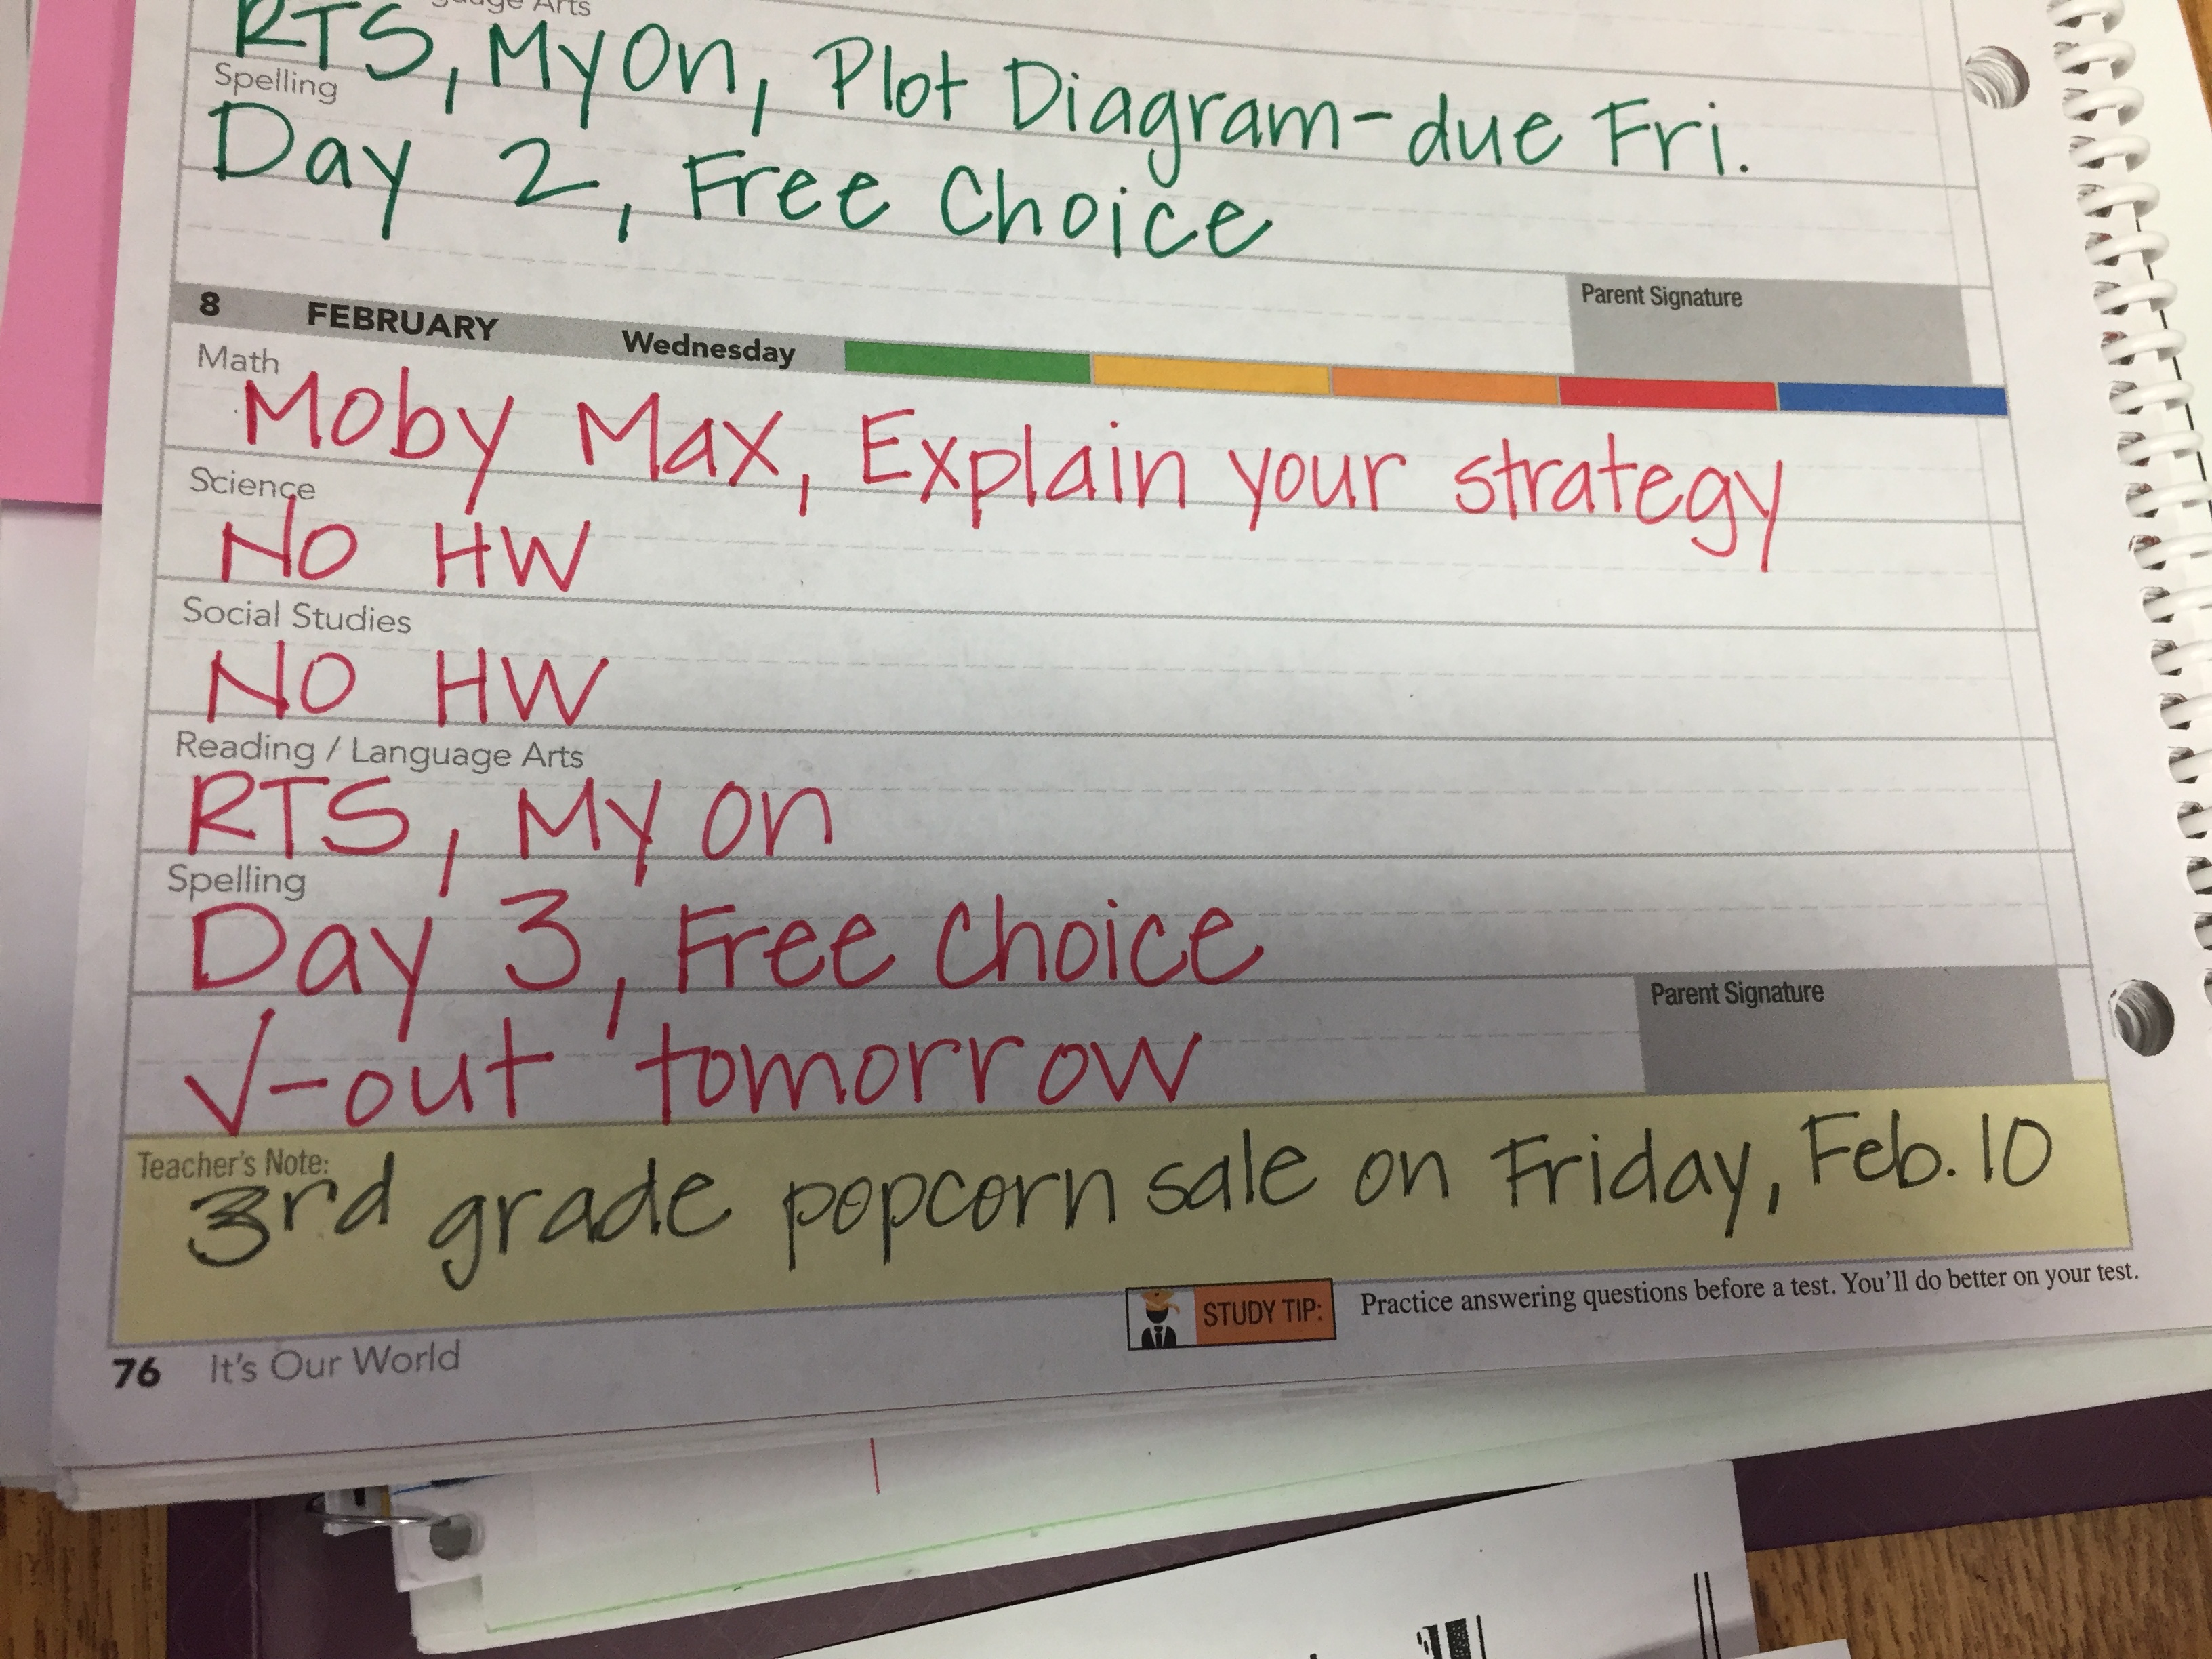 Arts
RTS, MyOn, Plot Diagram-due Fri.
Spelling
Day 2, Free Choice
Parent Signature
8 FEBRUARY Wednesday
Math
Moby Max, Explain your strategy
Science
No HW
Social Studies
No HW
Reading / Language Arts
RTS, My on
Spelling
Day 3, Free Choice
Parent Signature
√-out tomorrow
Teacher's Note:
3rd grade popcorn sale on Friday, Feb. 10
STUDY TIP: Practice answering questions before a test. You'll do better on your test.
76 It's Our World